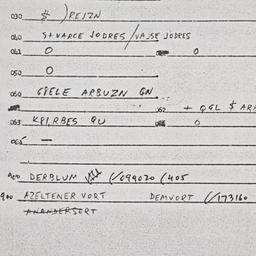 030 $ )REIZN
040 S+VARCE JODRES/VAJSE JODRES
042 0 0
050 0
060 GPELE ARBUZN GN
062 + QGL $ ARA
063 KPI,RBES QU 0
065 —
DERBLUM (/099020 (405
900 AZELTENER VORT DEMVORT (/173160
ANANDERSORT